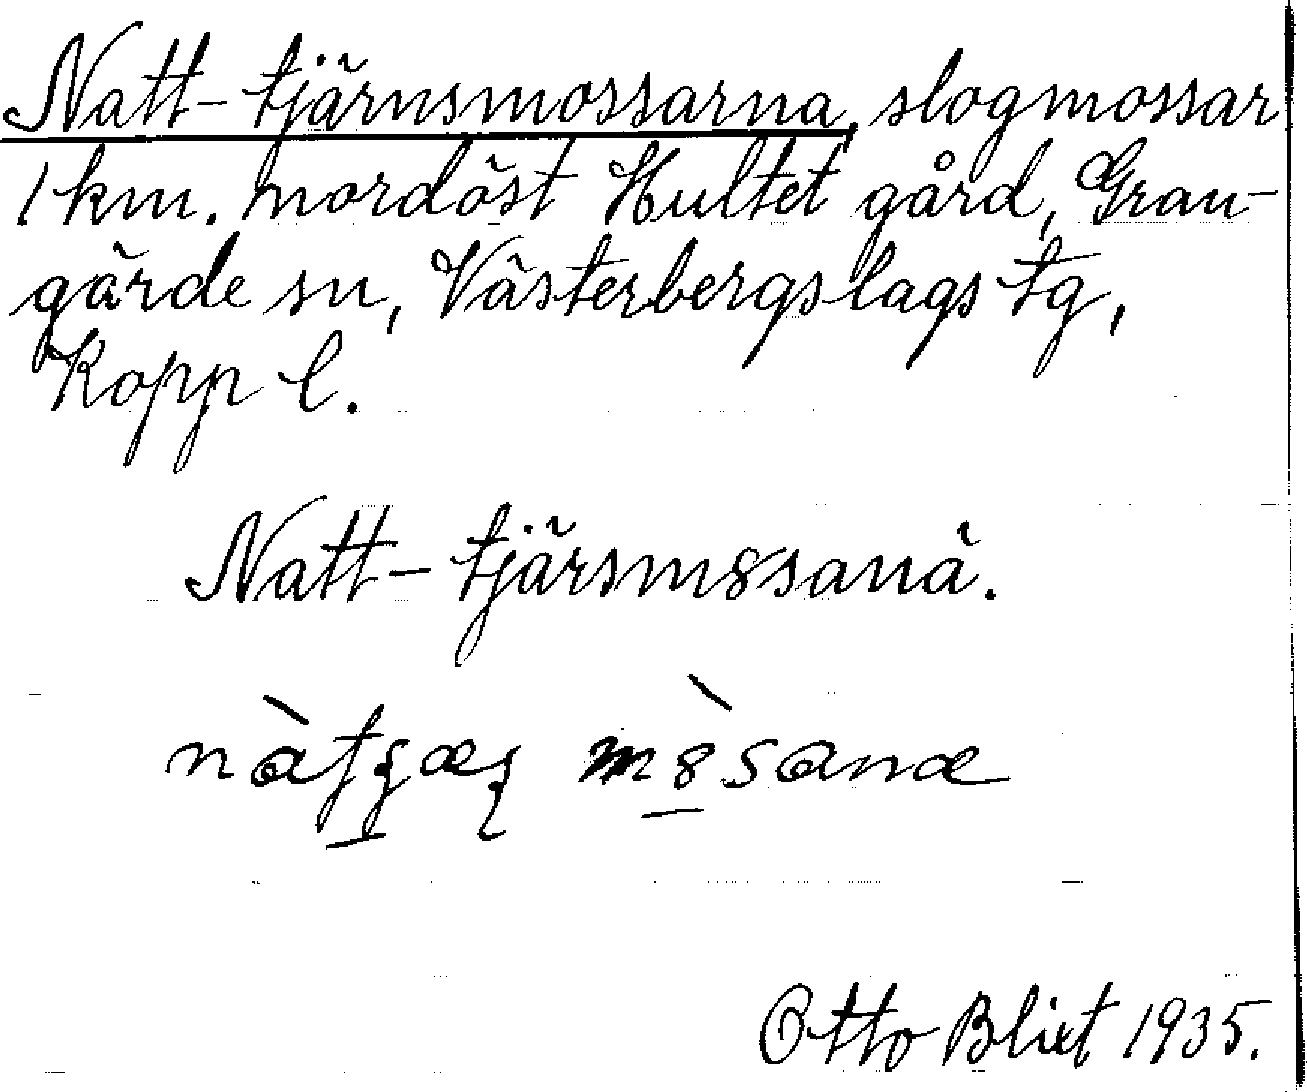 Natt-tjärnsmossarna, slogmossar
1 km. nordöst Hultet gård, Gran-
gärde sn, Västerbergslags tg,
Kopp l.
Natt-tjärsm8sanä.
Otto Blixt 1935.